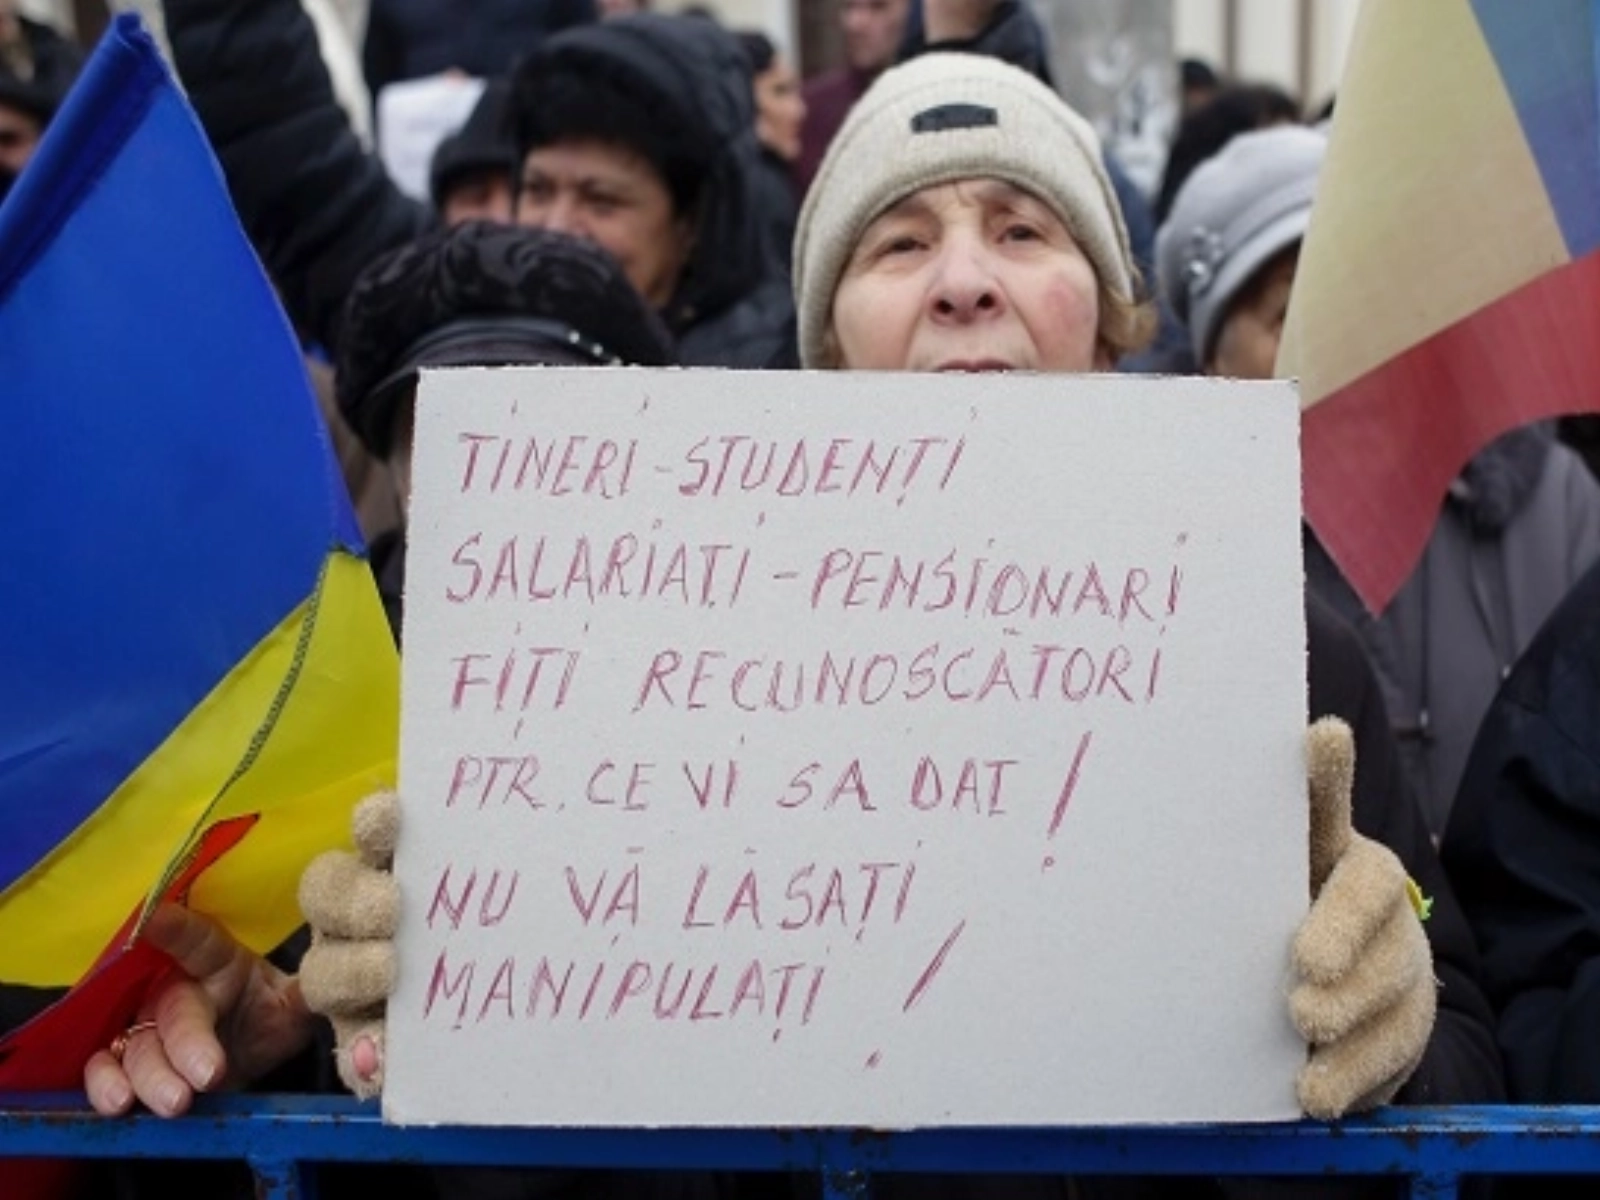 TINERI-STUDENȚI
SALARIAȚI-PENSIONARI
FIȚI RECUNOSCĂTORI
PTR. CE VI SA DAT!
NU VĂ LĂSAȚI
MANIPULAȚI!